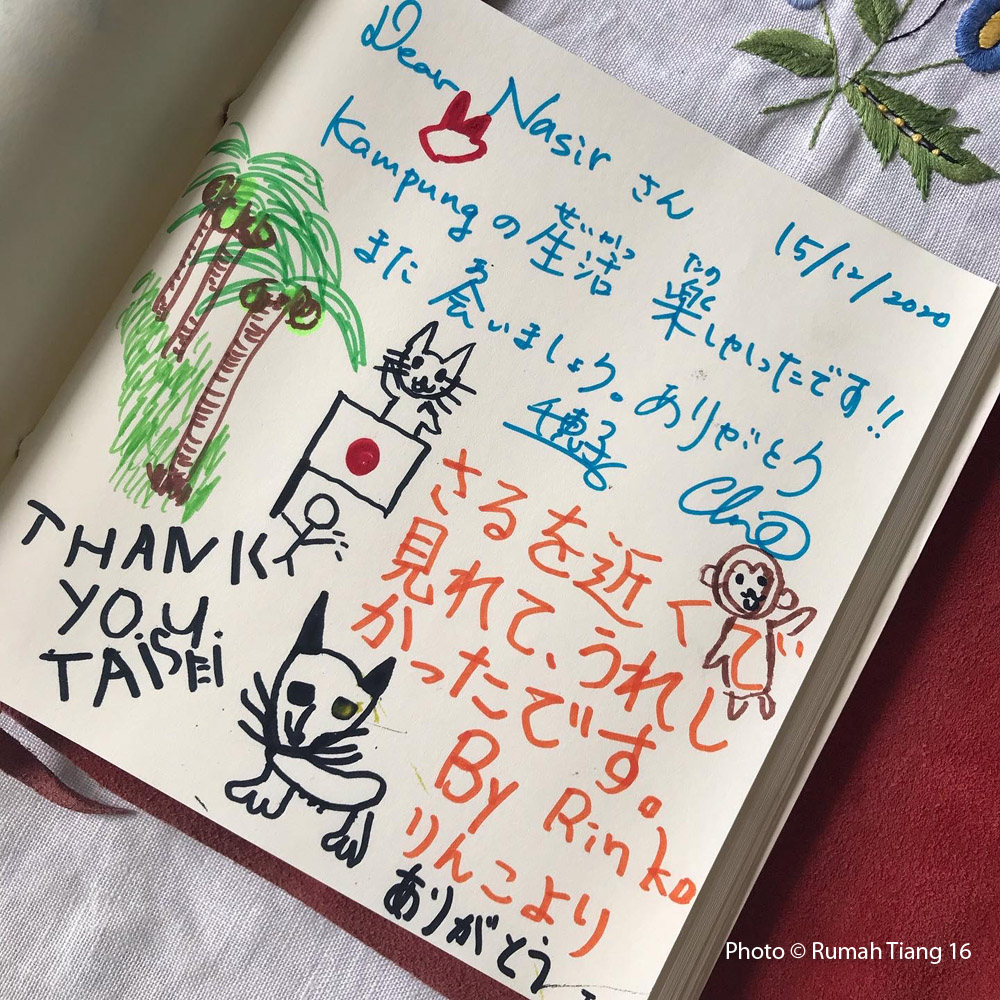 Dear Nasir さん
15/12/2020
せいかつ たの
Kampungの生活 楽しかったです!!
あ
また 会いましょう。ありがとう
千恵子
さるを近くで
見れて、うれし
かったです。
By Rinko
りんこより
ありがとう
THANK
YOU.
TAISEI
Photo © Rumah Tiang 16